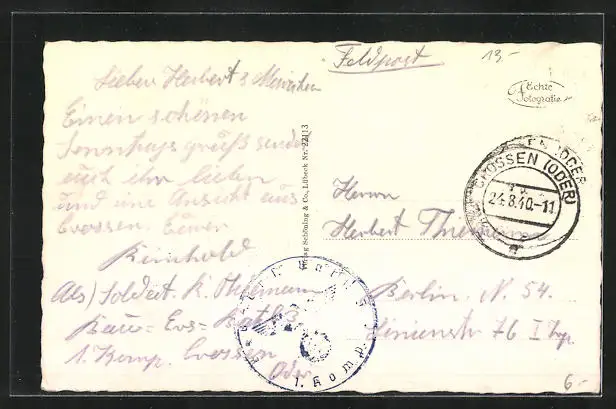 Feldpost
13.-
Echte
Fotografie
Lieber Herbert &
Einen schönen
Sonntags grüß sendet
euch ihr lieben
und eine Ansicht aus
Crossen. Euer
Reinhold
Abs) Soldat. R. Thiemann
Bau= Ers= Batl. 3
1. Komp. Crossen
Oder
Verlag Schöning & Co., Lübeck Nr. 22113
CROSSEN (ODER)
24.8.40.-11
a
1. Komp.
Herrn
Herbert Thiemann
Berlin. N. 54.
Linienstr 76 I Trp.
6.-